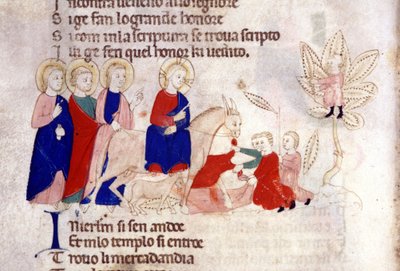 Si ge fan lo grande honore
Si com in la scriptura se troua scripto
ge fen quel honor
In ierlm si sen andoe
Et in lo templo si entroe
Trouo li mercadandia